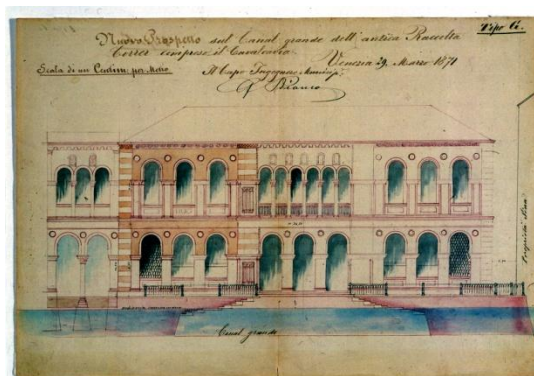 Tipo C.
Nuovo Prospetto sul Canal grande dell'antica Raccolta
Correr compreso il Cavalcavia
Venezia 29 Marzo 1871
Scala di un Centim: per Metro
Il Capo Ingegnere Municip:
G Bianco
Canal grande